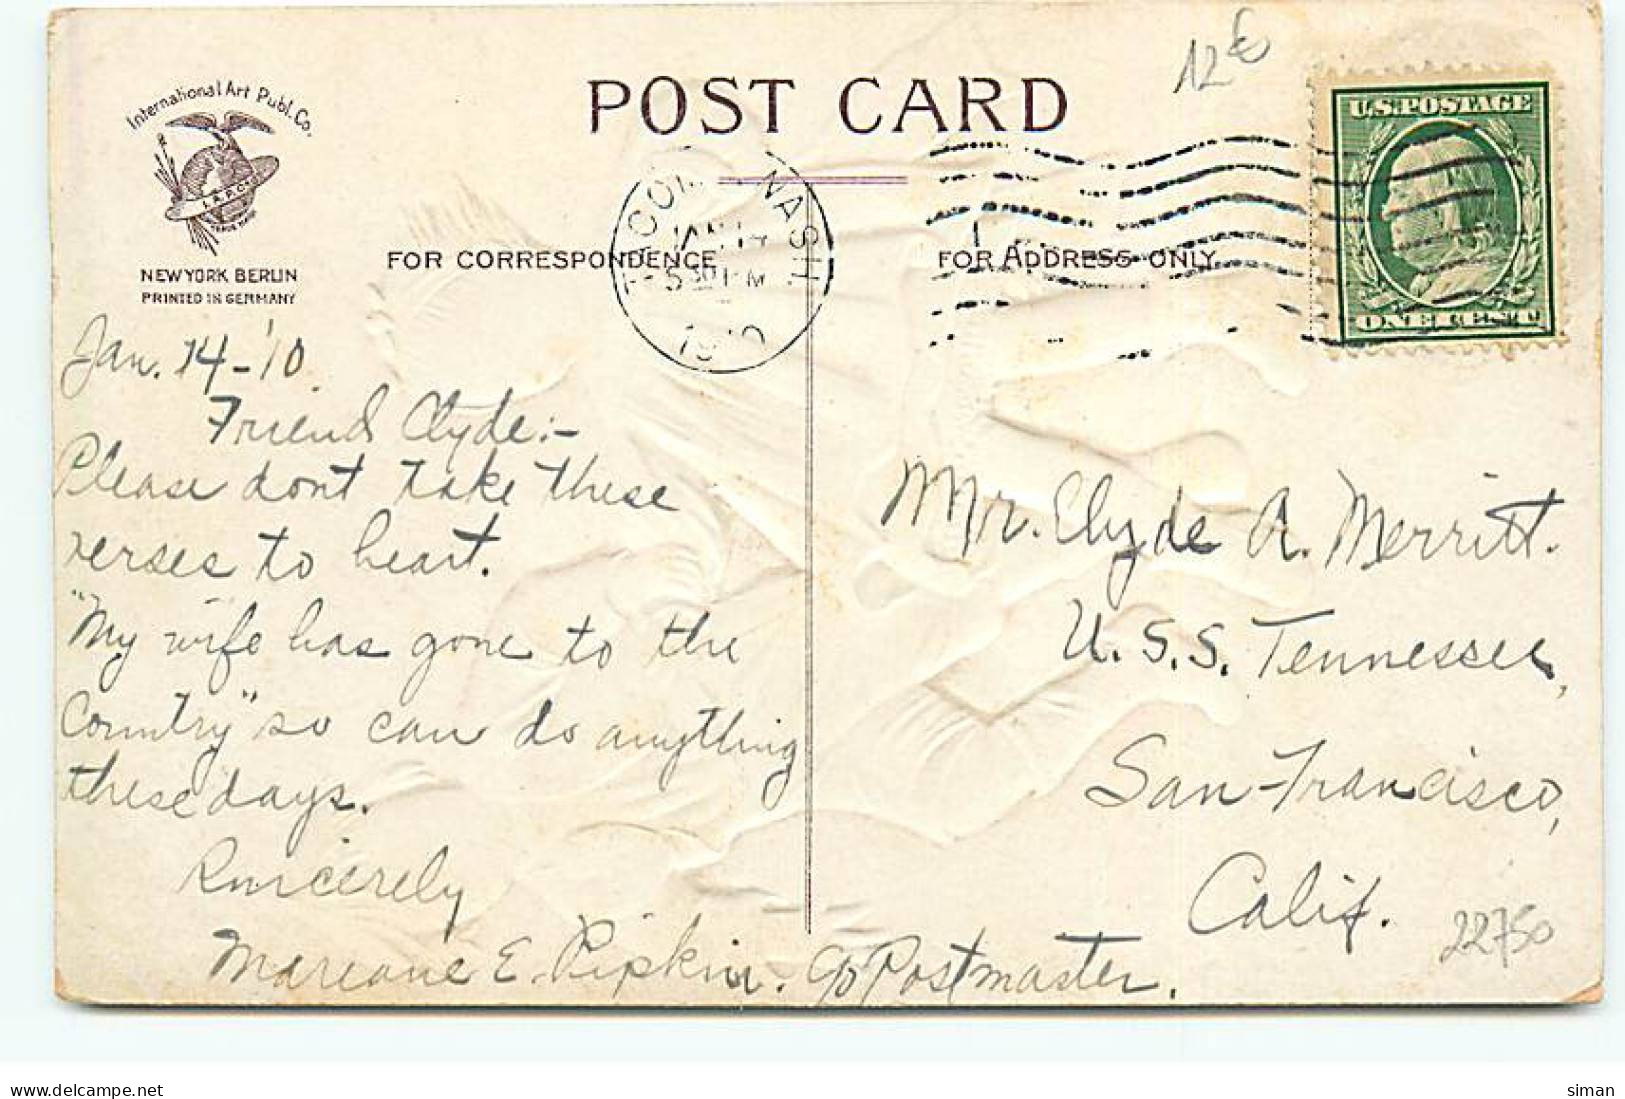 International Art Publ. Co.
I.A.P.Co.
NEW YORK BERLIN
PRINTED IN GERMANY
POST CARD
12 €
U.S. POSTAGE
ONE CENT
TACOMA WASH.
JAN 14
5 30 PM
1910
FOR CORRESPONDENCE
FOR ADDRESS ONLY
Jan. 14-'10.
Friend Clyde:-
Please dont take these
verses to heart.
"My wife has gone to the
Country" so can do anything
these days.
Sincerely
Mareane E. Pipkin.
Mr. Clyde A. Merritt.
U.S.S. Tennessee,
San-Francisco,
Calif.
c/o Postmaster.
22750
www.delcampe.net
siman